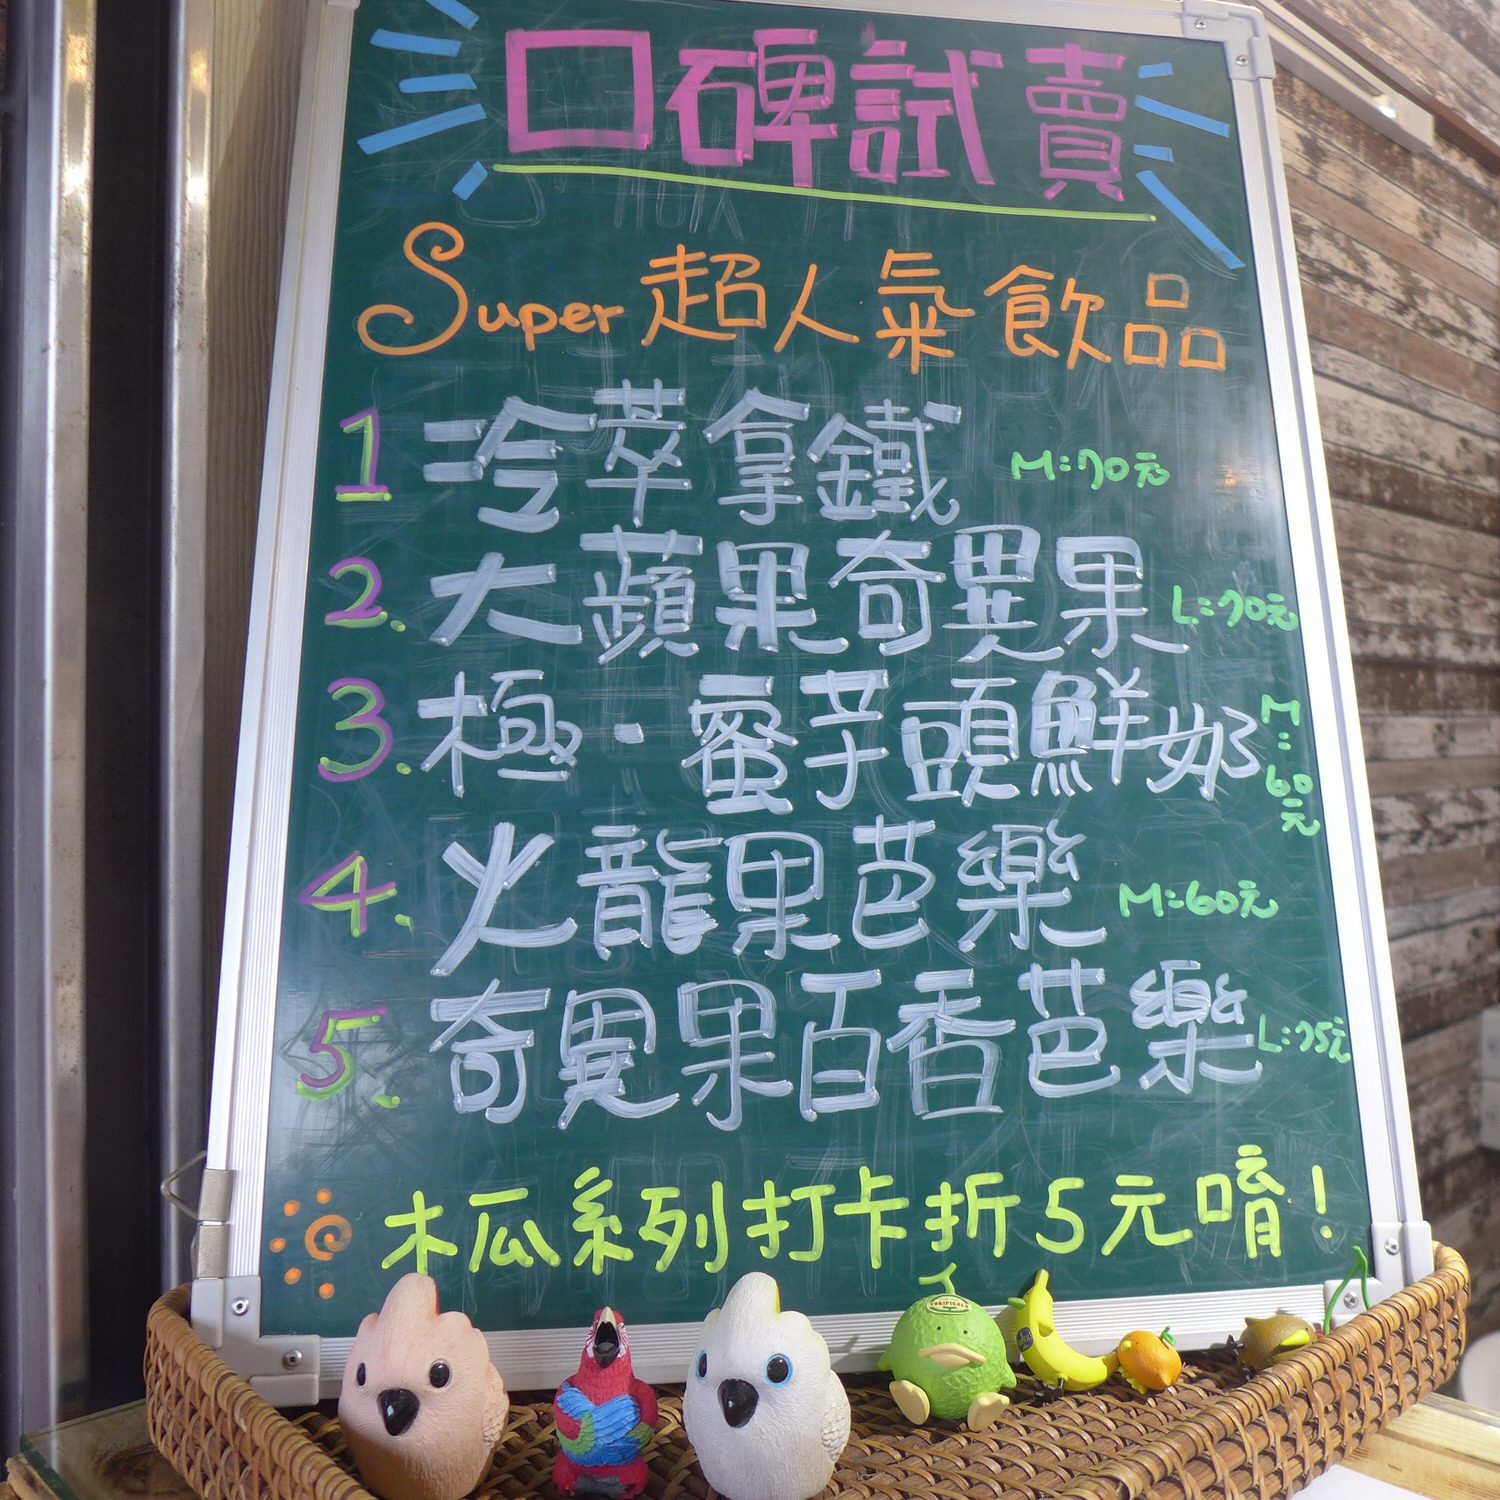 口碑試賣
Super超人氣飲品
1 冷萃拿鐵 M:70元
2. 大蘋果奇異果 L:70元
3. 極·蜜芋頭鮮奶 M:60元
4. 火龍果芭樂 M:60元
5. 奇異果百香芭樂 L:75元
木瓜系列打卡折5元唷!